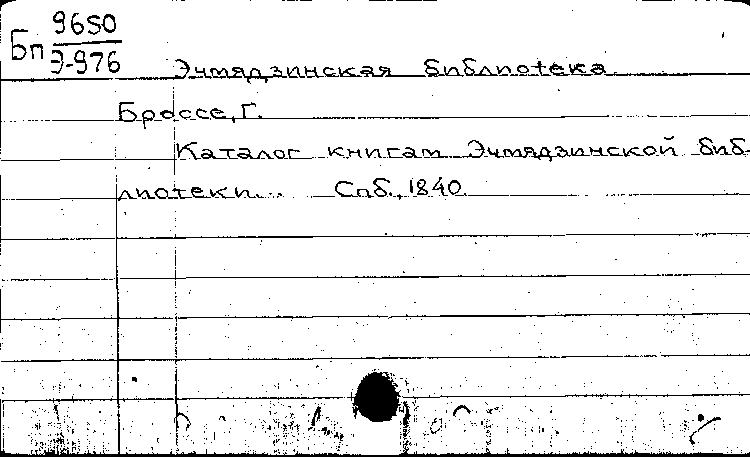 Бп 96SO
Э-976
Эчмядзинская библиотека
Броссе, Г.
Каталог книгам Эчмядзинской биб-
лиотеки... Спб., 1840.